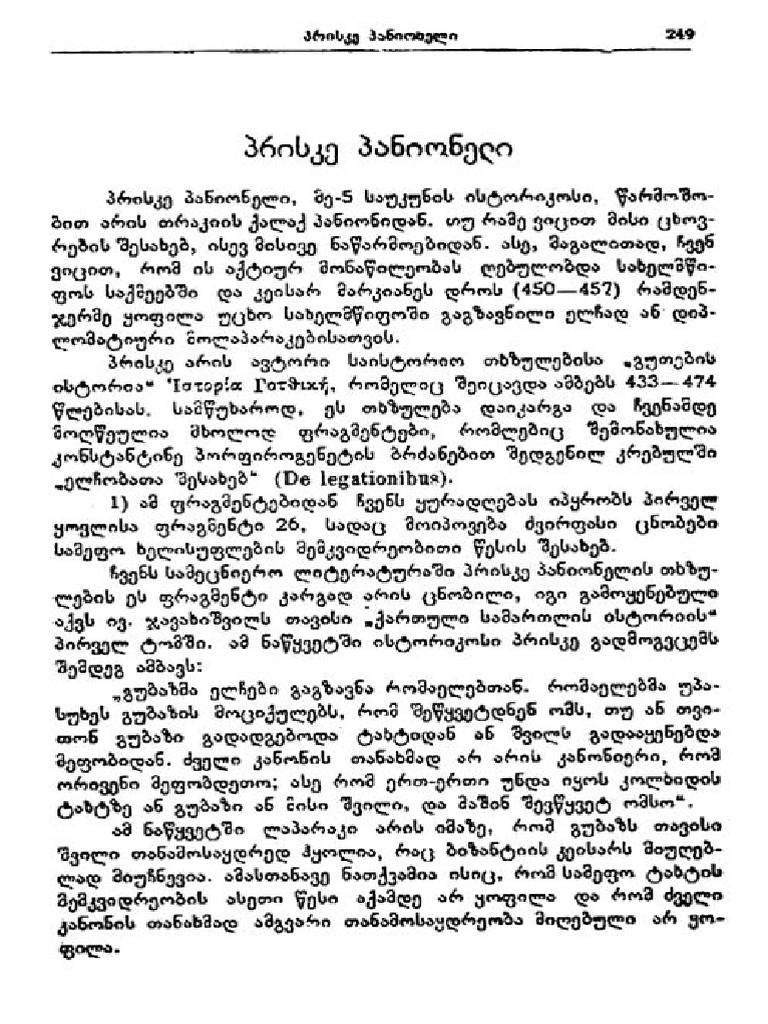 პრისკე პანიონელი 249
პრისკე პანიონელი
პრისკე პანიონელი, მე-5 საუკუნის ისტორიკოსი, წარმოშო-
ბით არის თრაკიის ქალაქ პანიონიდან. თუ რამე ვიცით მისი ცხოვ-
რების შესახებ, ისევ მისივე ნაწარმოებიდან. ასე, მაგალითად, ჩვენ
ვიცით, რომ ის აქტიურ მონაწილეობას ღებულობდა სახელმწი-
ფოს საქმეებში და კეისარ მარკიანეს დროს (450—457) რამდენ-
ჯერმე ყოფილა უცხო სახელმწიფოში გაგზავნილი ელჩად ან დიპ-
ლომატიური მოლაპარაკებისათვის.
პრისკე არის ავტორი საისტორიო თხზულებისა „გუთების
ისტორია“ Ἱστορία Γοτθική, რომელიც შეიცავდა ამბებს 433—474
წლებისას. სამწუხაროდ, ეს თხზულება დაიკარგა და ჩვენამდე
მოღწეულია მხოლოდ ფრაგმენტები, რომლებიც შემონახულია
კონსტანტინე პორფიროგენეტის ბრძანებით შედგენილ კრებულში
„ელჩობათა შესახებ“ (De legationibus).
1) ამ ფრაგმენტებიდან ჩვენს ყურადღებას იპყრობს პირველ
ყოვლისა ფრაგმენტი 26, სადაც მოიპოვება ძვირფასი ცნობები
სამეფო ხელისუფლების მემკვიდრეობითი წესის შესახებ.
ჩვენს სამეცნიერო ლიტერატურაში პრისკე პანიონელის თხზუ-
ლების ეს ფრაგმენტი კარგად არის ცნობილი, იგი გამოყენებული
აქვს ივ. ჯავახიშვილს თავისი „ქართული სამართლის ისტორიის“
პირველ ტომში. ამ ნაწყვეტში ისტორიკოსი პრისკე გადმოგვცემს
შემდეგ ამბავს:
„გუბაზმა ელჩები გაგზავნა რომაელებთან. რომაელებმა უპა-
სუხეს გუბაზის მოციქულებს, რომ შეწყვეტდნენ ომს, თუ ან თვი-
თონ გუბაზი გადადგებოდა ტახტიდან ან შვილს გადააყენებდა
მეფობიდან. ძველი კანონის თანახმად არ არის კანონიერი, რომ
ორივენი მეფობდეთო; ასე რომ ერთ-ერთი უნდა იყოს კოლხიდის
ტახტზე ან გუბაზი ან მისი შვილი, და მაშინ შევწყვეტ ომსო“.
ამ ნაწყვეტში ლაპარაკი არის იმაზე, რომ გუბაზს თავისი
შვილი თანამოსაყდრედ ჰყოლია, რაც ბიზანტიის კეისარს მიუღებ-
ლად მიუჩნევია. ამასთანავე ნათქვამია ისიც, რომ სამეფო ტახტის
მემკვიდრეობის ასეთი წესი აქამდე არ ყოფილა და რომ ძველი
კანონის თანახმად ამგვარი თანამოსაყდრეობა მიღებული არ ყო-
ფილა.